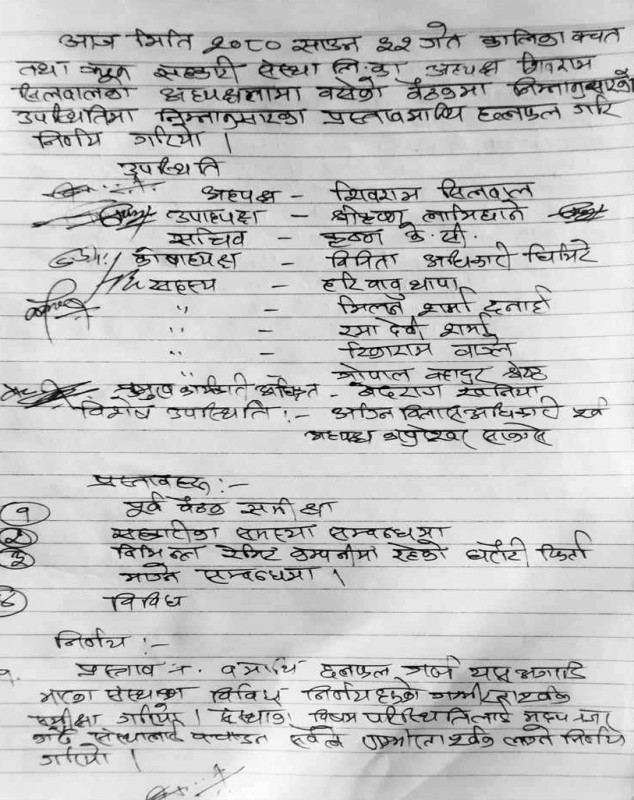 आज मिति २०८० साउन ३२ गते कालिका बचत
तथा ऋण सहकारी संस्था लि.का अध्यक्ष शिवराम
सिलवालको अध्यक्षतामा बसेको बैठकमा निम्नानुसारको
उपस्थितिमा निम्नानुसारका प्रस्तावमाथि छलफल गरि
निर्णय गरियो ।
उपस्थिति
अध्यक्ष - शिवराम सिलवाल
उपाध्यक्ष - श्रीकृष्ण लामिछाने
सचिव - कृष्ण के.सी.
कोषाध्यक्ष - विविता अधिकारी घिमिरे
सदस्य - हरि बाबु थापा
" - मिलन शर्मा
" - रमा देवी शर्मा
" -
" - गोपाल बहादुर श्रेष्ठ
प्रमुख कार्यकारी अधिकृत - वेदराज
विशेष उपस्थिति :- अधिकारी पूर्व
अध्यक्ष
प्रस्तावहरु :-
१ पूर्व बैठक समीक्षा
२ सहकारीका समस्या सम्बन्धमा
३ विभिन्न कम्पनीमा रहेको धरौटी फिर्ता
सम्बन्धमा ।
४ विविध
निर्णय :-
१. प्रस्ताव नं. १ माथि छलफल गर्दा यस अगाडि
भएका संस्थाका विविध निर्णयहरुको गम्भीरतापूर्वक
समीक्षा गरियो । संस्थाका विषम परिस्थितिलाई
संस्थालाई गम्भीरता पूर्वक लाग्ने निर्णय
गरियो ।